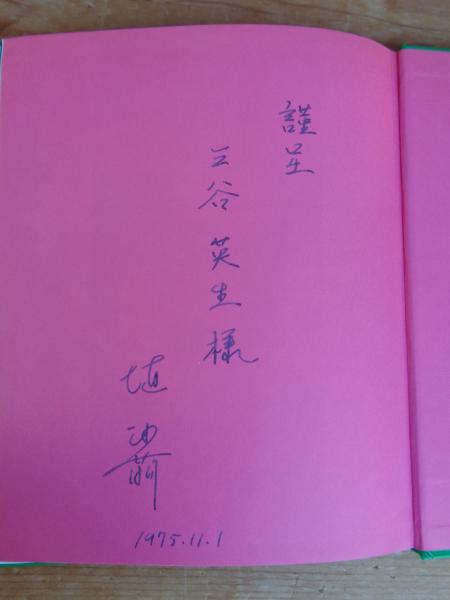 謹呈
三谷英生様
埴沙萠
1975.11.1